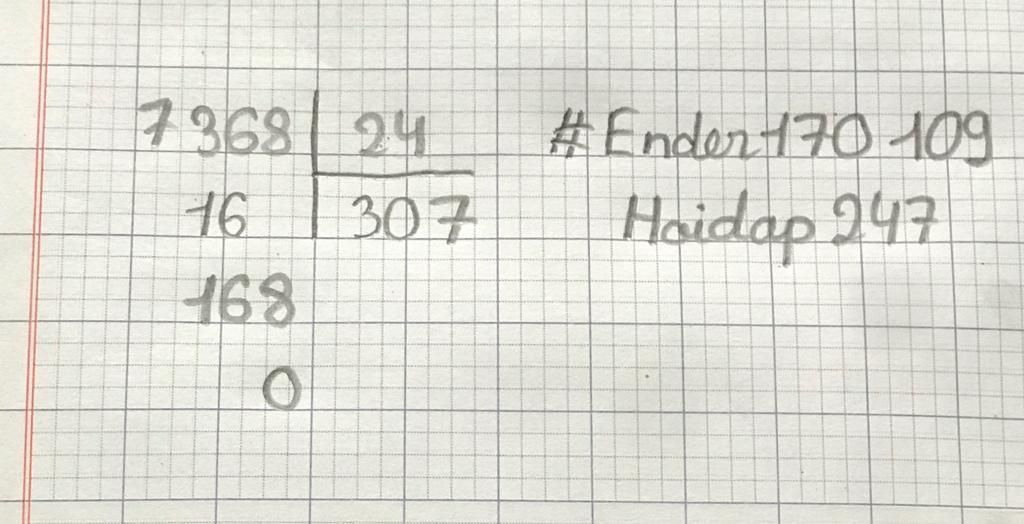 7368 24 #Ender170109
16 307 Haidap247
168
0